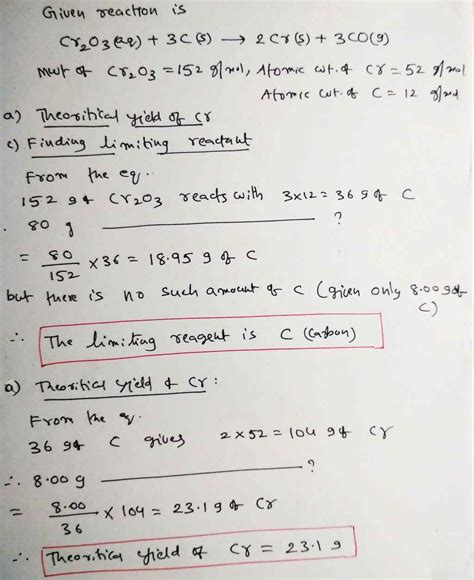 Given reaction is
Cr2O3(aq) + 3C(s) → 2Cr(s) + 3CO(g)
Mwt of Cr2O3 = 152 g/mol, Atomic wt. of Cr = 52 g/mol
Atomic wt. of C = 12 g/mol
a) Theoritical yield of Cr
c) Finding limiting reactant
From the eq.
152 g of Cr2O3 reacts with 3×12 = 36 g of C
80 g ———— ?
= 80/152 × 36 = 18.95 g of C
but there is no such amount of C (given only 8.00 g of C)
∴ The limiting reagent is C (Carbon)
a) Theoritical yield of Cr :
From the eq.
36 g of C gives 2×52 = 104 g of Cr
∴ 8.00 g ———— ?
= 8.00/36 × 104 = 23.1 g of Cr
∴ Theoritical yield of Cr = 23.1 g